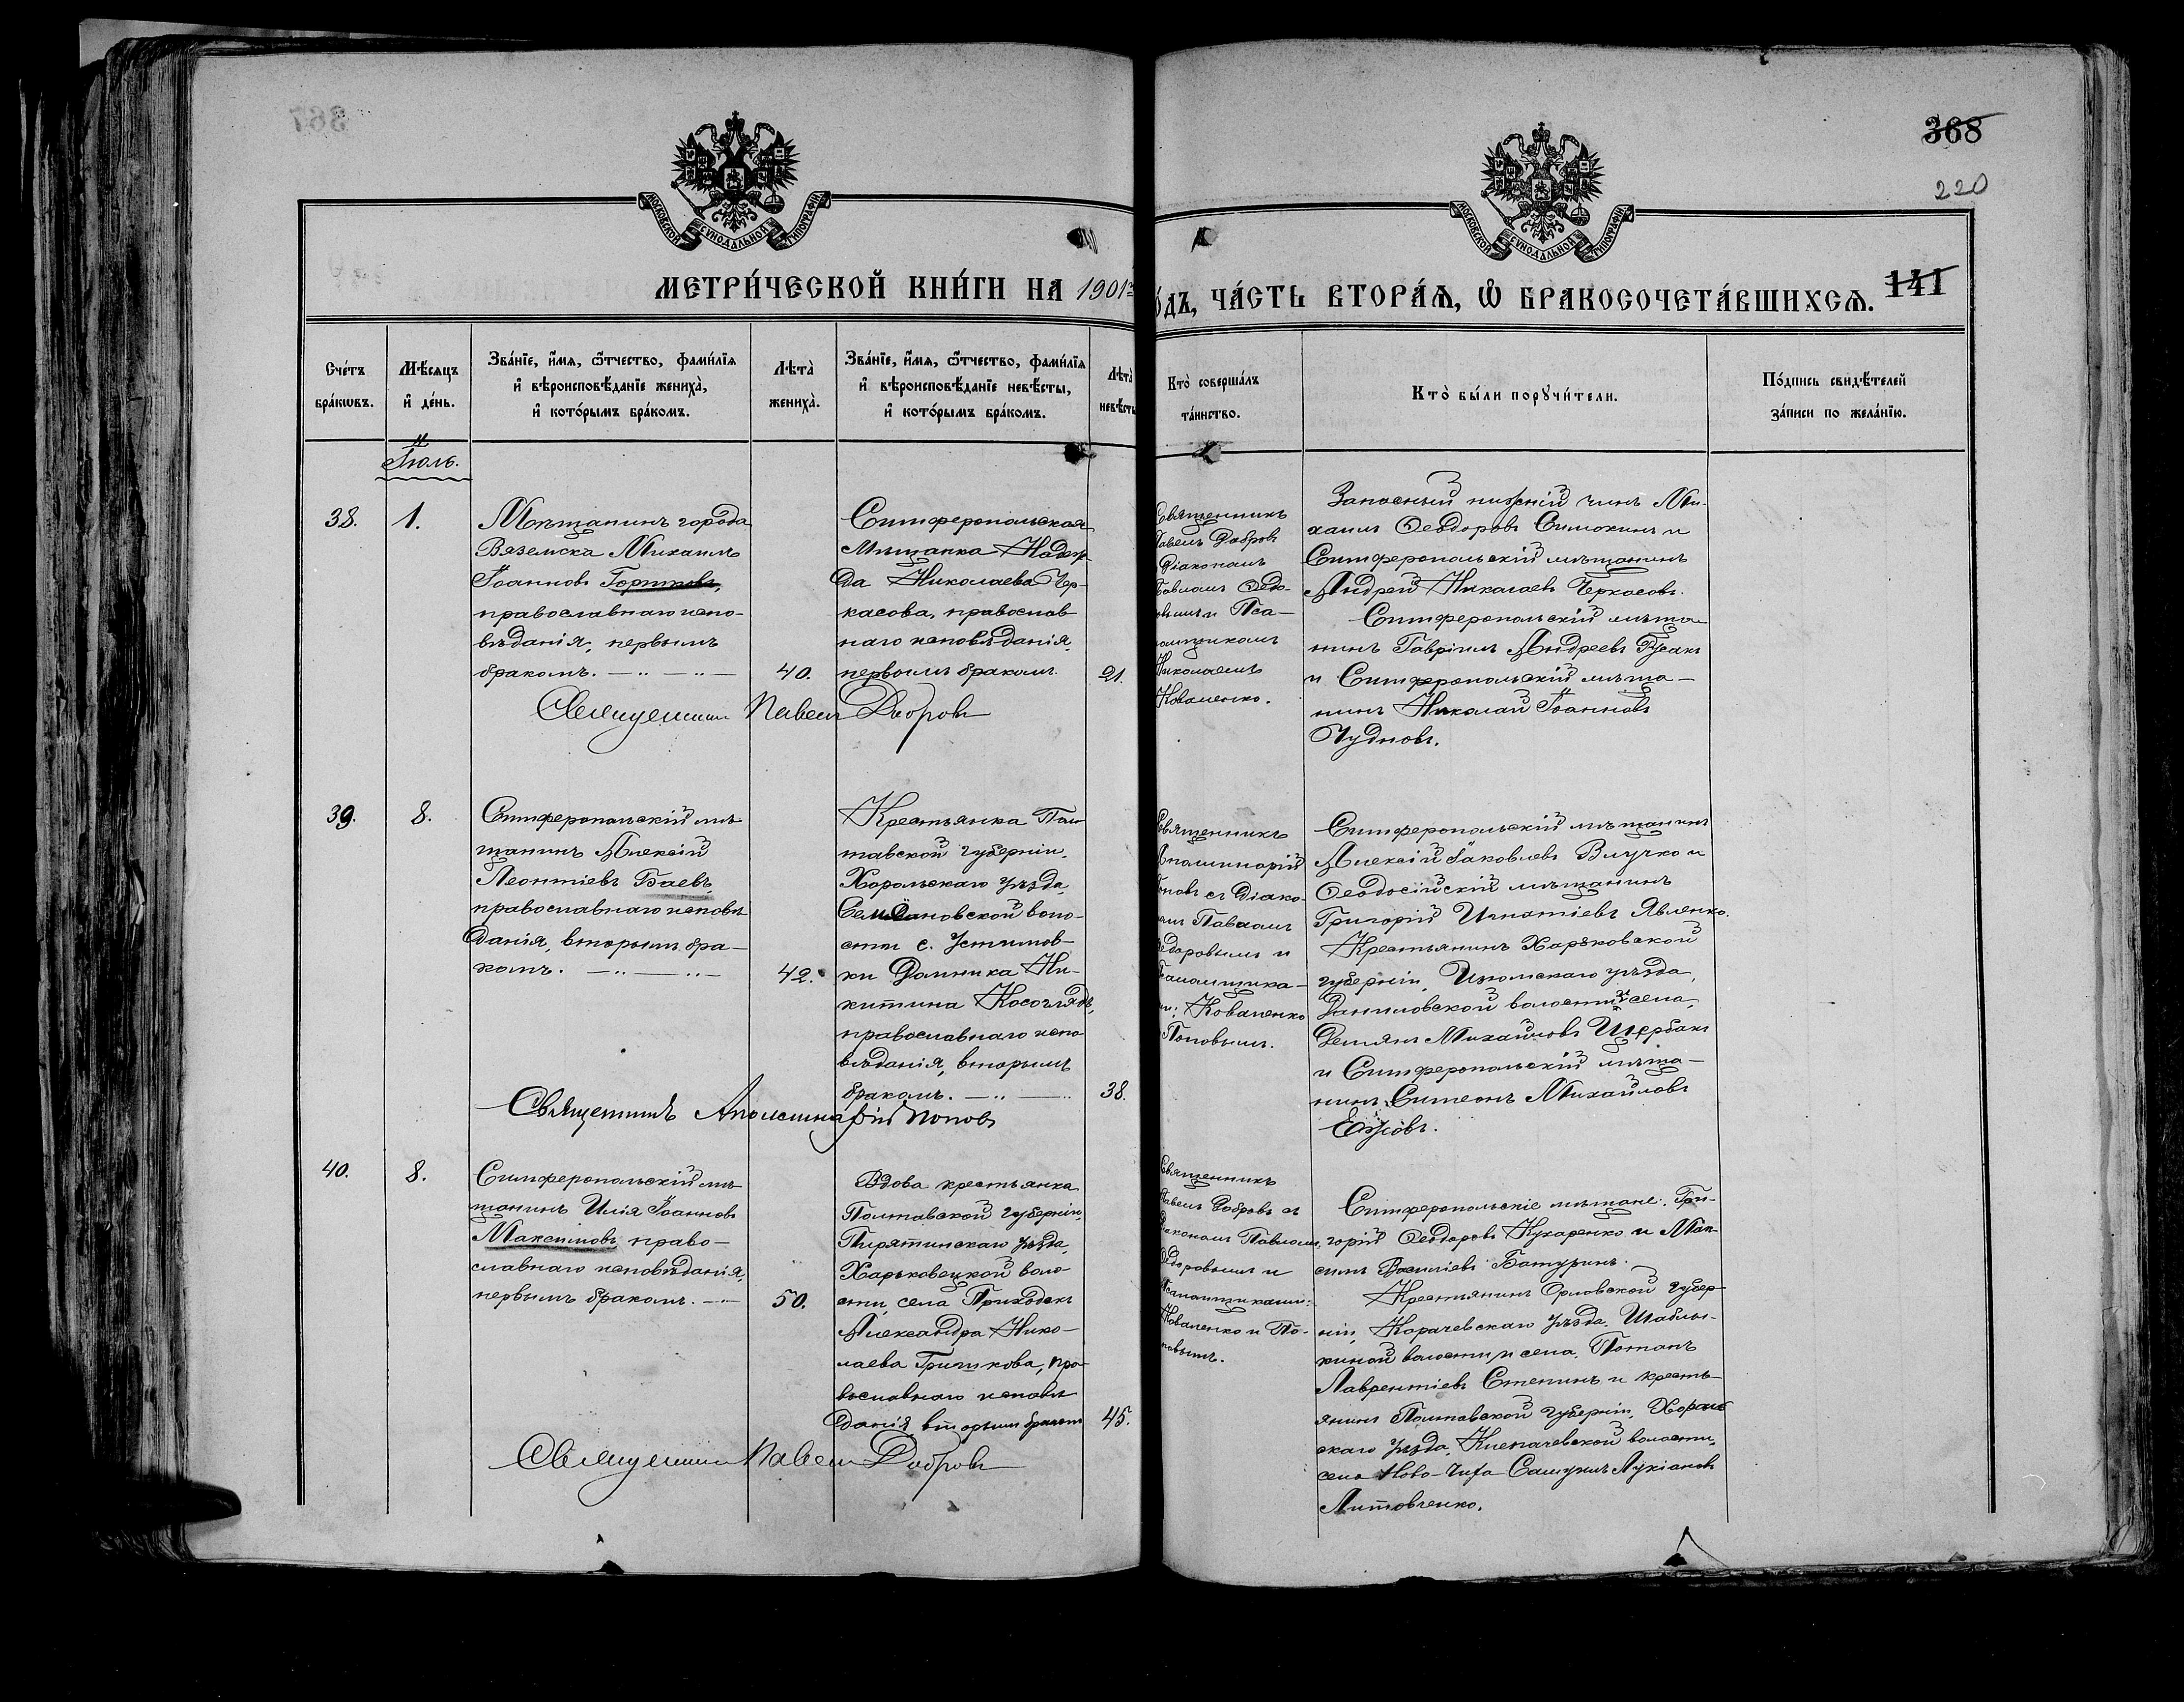 368
220
МОСКОВСКОЙ СѴНОДАЛЬНОЙ ТИПОГРАФІИ
МОСКОВСКОЙ СѴНОДАЛЬНОЙ ТИПОГРАФІИ
МЕТРИ́ЧЕСКОЙ КНИ́ГИ НА 1901
ѠДЪ, ЧА́СТЬ ВТОРА́Ѧ, Ѡ҆ БРАКОСОЧЕТА́ВШИХСѦ.
141
Сче́тъ
бра́кѡвъ.
Мѣ́сяцъ
и҆ де́нь.
Зва́нїе, и҆́мѧ, ѻ҆́тчество, фами́лїѧ
и҆ вѣроисповѣ́данїе жениха̀,
и҆ кото́рымъ бра́комъ.
Лѣта̀
жениха̀.
Зва́нїе, и҆́мѧ, ѻ҆́тчество, фами́лїѧ
и҆ вѣроисповѣ́данїе невѣ́сты,
и҆ кото́рымъ бра́комъ.
Лѣта̀
невѣ́сты
Кто̀ соверша́лъ
та́инство.
Кто̀ бы́ли порꙋчи́тели.
По́дпись свидѣ́телей
за́писи по жела́нїю.
Іюль.
38.
1.
Мѣщанинъ города
Вяземска Михаилъ
Іоанновъ Горшковъ,
православнаго испо-
вѣданія, первымъ
бракомъ.
40.
Симферопольская
Мѣщанка Надеж-
да Николаева Чер-
касова, православ
наго исповѣданія,
первымъ бракомъ.
21.
Священникъ
Павелъ Добровъ
Діакономъ
Павломъ Ѳедо-
овымъ и Пса-
омщикомъ
Николаемъ
Коваленко.
Запасный нижній чинъ Ми-
хаилъ Ѳеодоровъ Симохинъ и
Симферопольскій мѣщанинъ
Андрей Николаевъ Черкасовъ.
Симферопольскій мѣща
нинъ Гавріилъ Андреевъ Гусакъ
и Симферопольскій мѣща-
нинъ Николай Іоанновъ
Чудновъ.
Священникъ Павелъ Добровъ
39.
8.
Симферопольскій мѣ
щанинъ Алексій
Леонтіевъ Баевъ,
православнаго исповѣ
данія, вторымъ бра-
комъ.
42.
Крестьянка Пол
тавской губерніи,
Хорольскаго уѣзда,
волo-
сти с. Устимов-
ки Домника Ни-
китина Косоглядъ,
православнаго испо
вѣданія, вторымъ
бракомъ.
38.
Священникъ
Аполлинарій
Поповъ съ Діако-
омъ Павломъ
Ѳедоровымъ и
Псаломщика-
ми: Коваленко
Поповымъ.
Симферопольскій мѣщанинъ
Алексій Іаковлевъ Влучко и
Ѳеодосійскій мѣщанинъ
Григорій Игнатіевъ Явленко.
Крестьянинъ Харьковской
губерніи, Изюмскаго уѣзда,
Даниловской волости и села,
Деміянъ Михайловъ Щербакъ
и Симферопольскій мѣща-
нинъ Симеонъ Михайловъ
Ежовъ.
Священникъ Аполлинарій Поповъ
40.
8.
Симферопольскій мѣ
щанинъ Илія Іоанновъ
Максимовъ право-
славнаго исповѣданія,
первымъ бракомъ.
50.
Вдова крестьянка
Полтавской губерніи,
Пирятинскаго уѣзда,
Харьковецкой воло
сти, села Приходекъ
Александра Нико-
лаева Гришкова, пра
вославнаго исповѣ
данія, вторымъ бракомъ
45.
Священникъ
Павелъ Добровъ съ
Діакономъ Павломъ
Ѳедоровымъ и
Псаломщиками:
Коваленко и По-
повымъ.
Симферопольскіе мѣщане: Гри-
горій Ѳеодоровъ Кухаренко и Мак
симъ Василіевъ Батуринъ.
Крестьянинъ Орловской губер-
ніи, Карачевскаго уѣзда, Шаблы-
киной волости и села, Потапъ
Лаврентіевъ Степинъ и кресть-
янинъ Полтавской губерніи, Хороль
скаго уѣзда, волости,
села Самуилъ Лукіановъ
Литовченко.
Священникъ Павелъ Добровъ